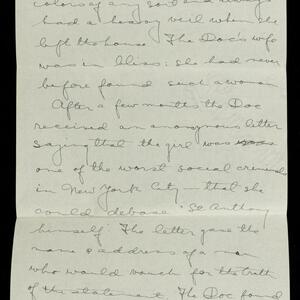 colors of any sort and always
had a heavy veil when she
left the house. The Doc's wife
was in bliss: she had never
before found such a woman
After a few months the Doc
received an anonymous letter
saying that the girl was
one of the worst social criminals
in New York City – that she
could debase St Anthony
himself. The letter gave the
name & address of a man
who would vouch for the truth
of the statement. The Doc found